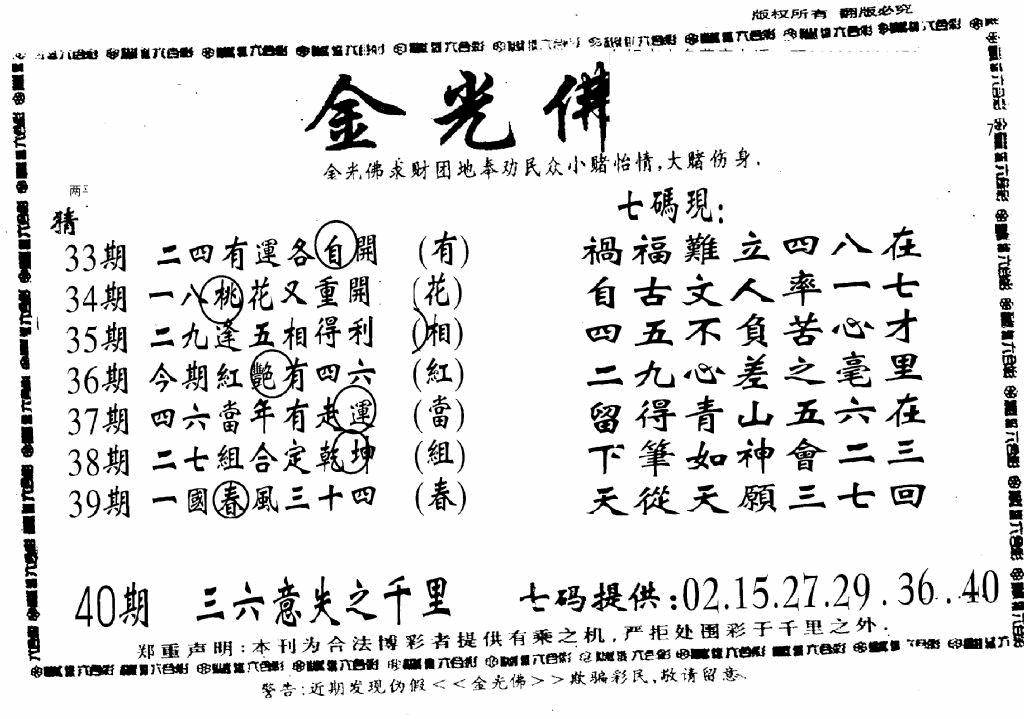 版权所有 翻版必究
金光佛
金光佛求财团地奉劝民众小赌怡情,大赌伤身.
猜
七碼現:
33期 二四有運各自開 (有) 禍福難立四八在
34期 一八桃花又重開 (花) 自古文人率一七
35期 二九逢五相得利 (相) 四五不負苦心才
36期 今期紅艷有四六 (紅) 二九心差之毫里
37期 四六當年有走運 (當) 留得青山五六在
38期 二七組合定乾坤 (組) 下筆如神會二三
39期 一國春風三十四 (春) 天從天願三七回
40期 三六意失之千里 七码提供:02.15.27.29.36..40
郑重声明:本刊为合法博彩者提供有乘之机,严拒处围彩于千里之外.
警告:近期发现伪假<<金光佛>>欺骗彩民,敬请留意